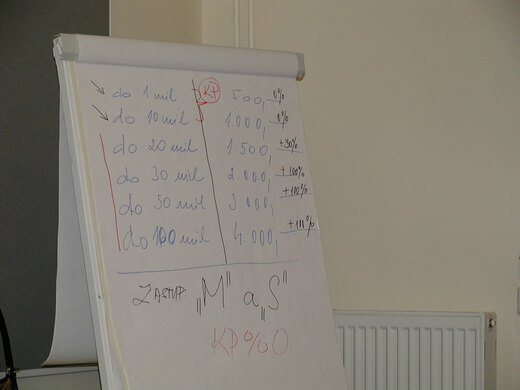 do 1 mil KP 500,- 0%
do 10 mil 1.000,- 0%
do 20 mil 1.500,- +50%
do 30 mil 2.000,- +100%
do 50 mil 3.000,- +100%
do 100 mil 4.000,- +100%
ZASTUP. „M" a „S"
KP%0